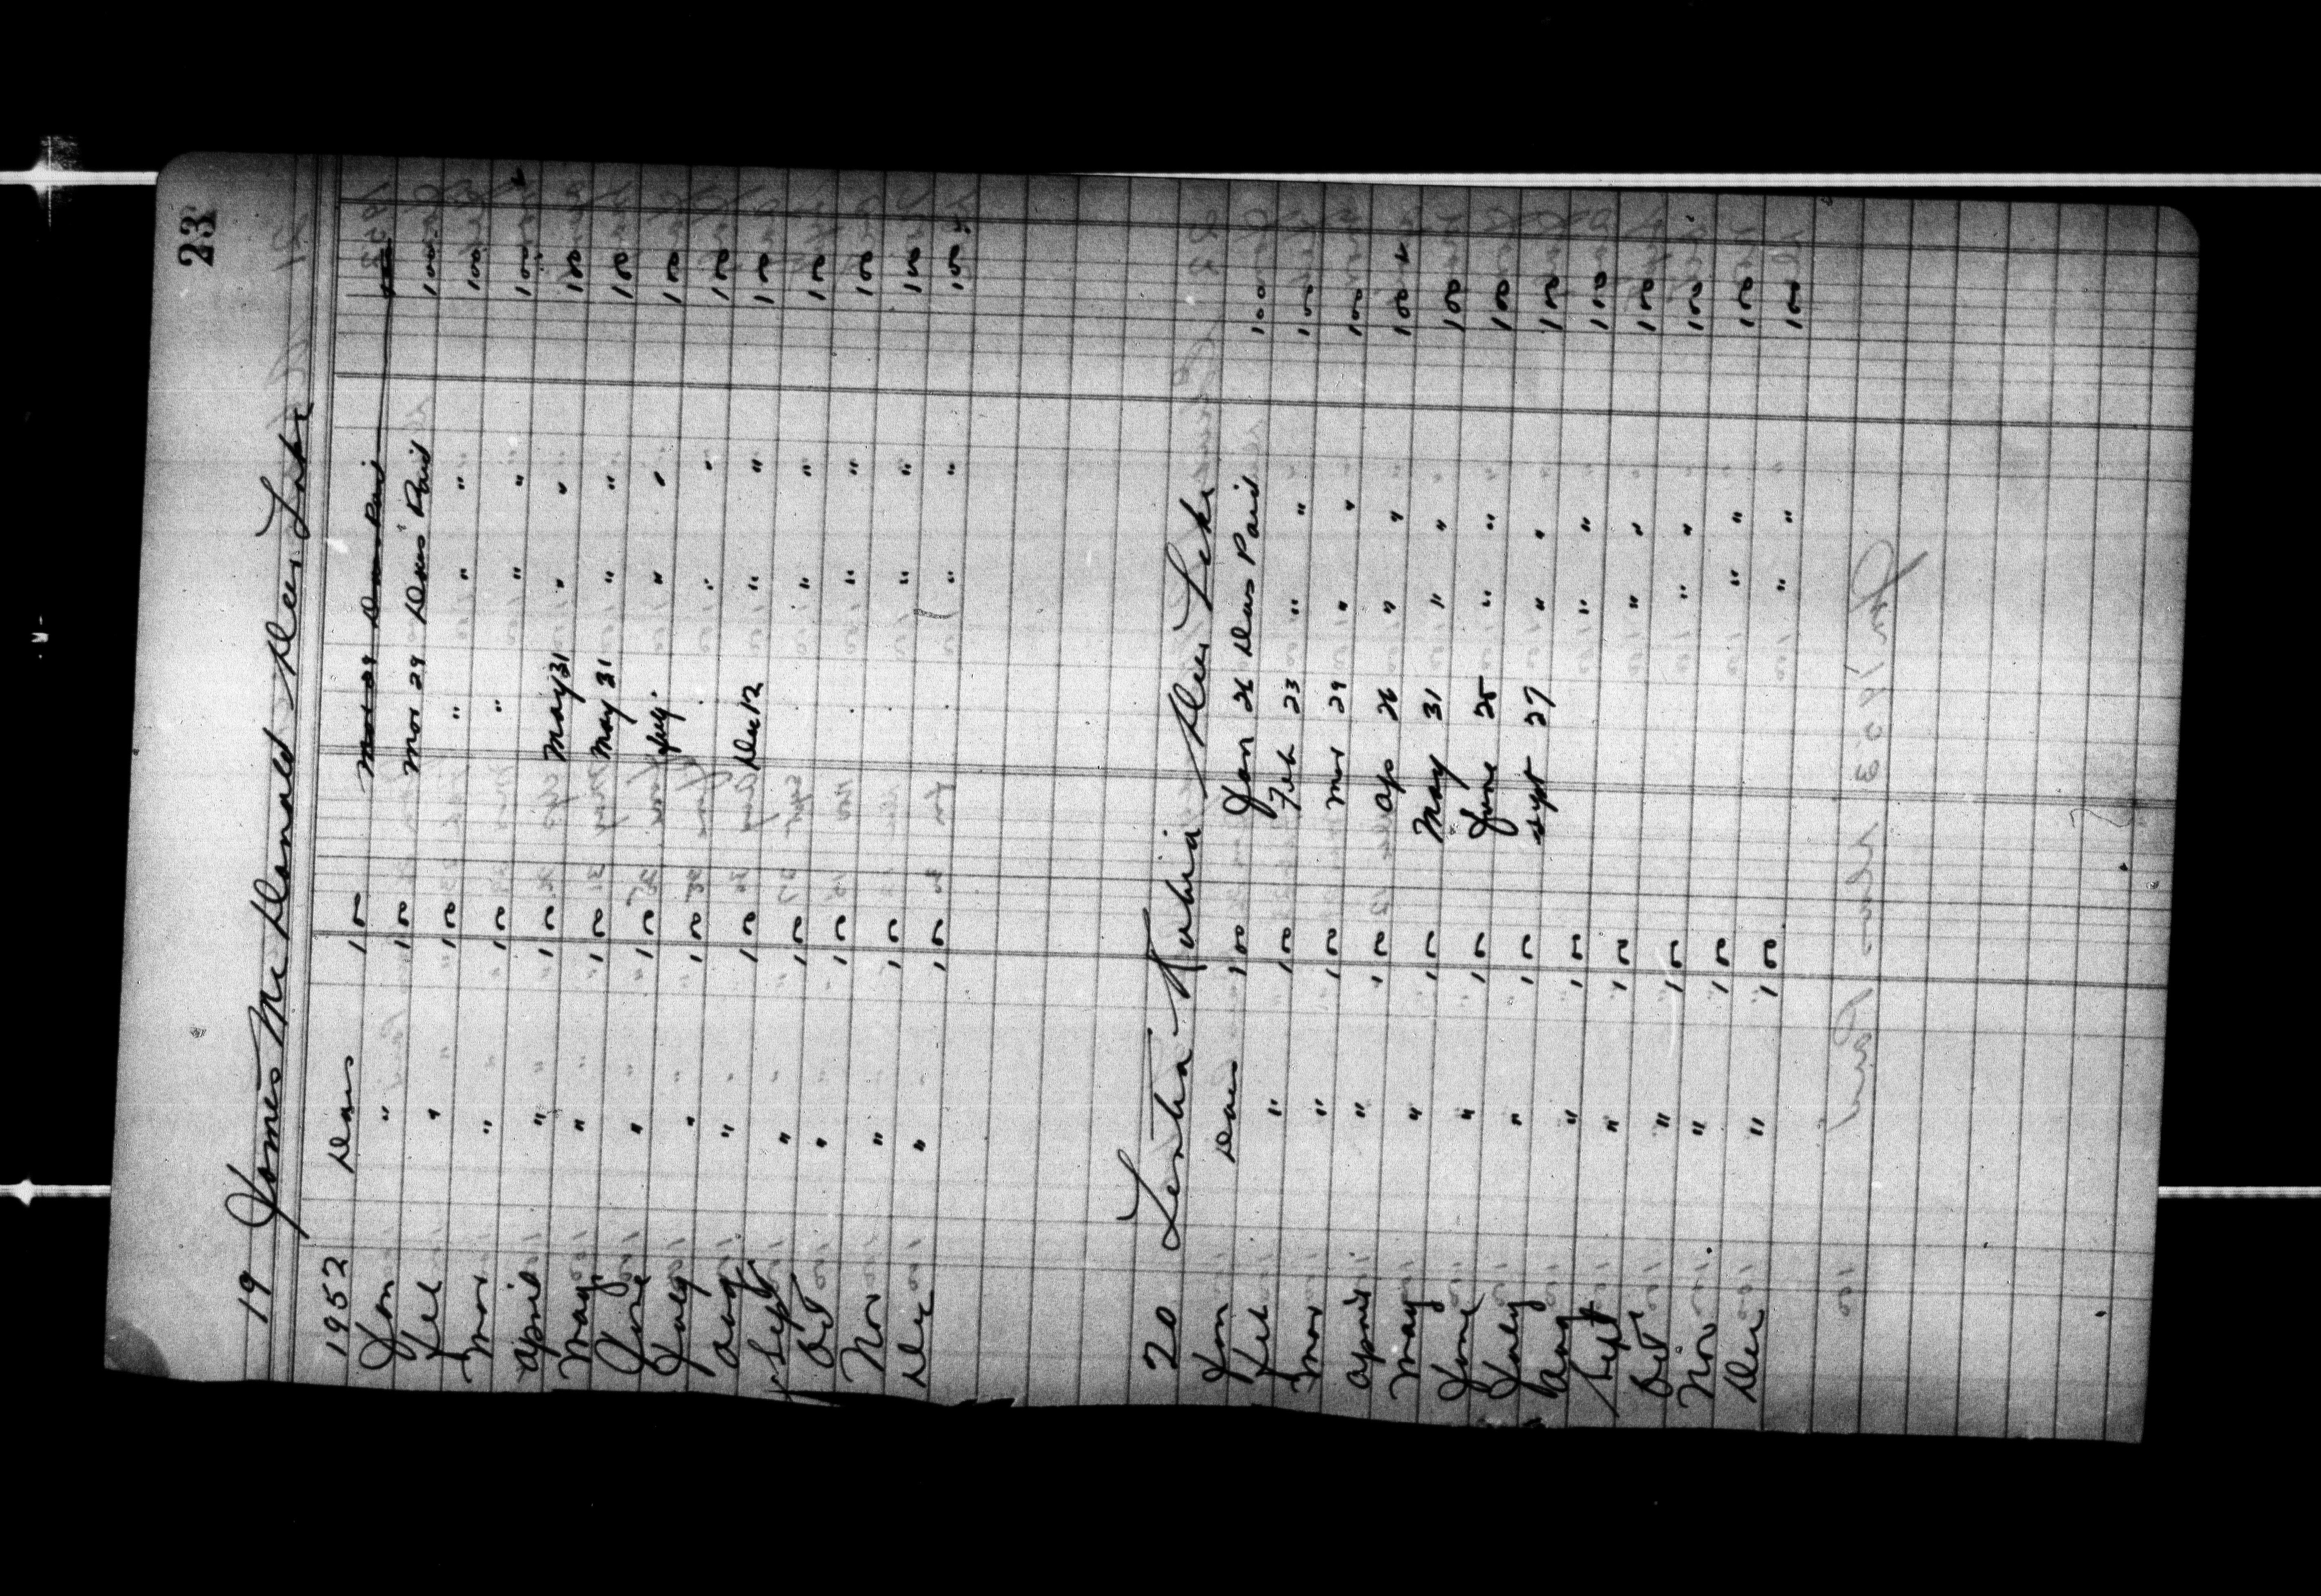 23
19 James McDonald Deer Lake
1952 Dues 1 00 Mar 29 Dues Paid 1 00
Jan " 1 00 Mar 29 Dues Paid 1 00
Feb " 1 00 " " " 1 00
Mar " 1 00 " " " 1 00
April " 1 00 May 31 " " 1 00
May " 1 00 May 31 " " 1 00
June " 1 00 July " " 1 00
July " 1 00 " " 1 00
Aug " 1 00 Dec 12 " " 1 00
Sept " 1 00 " " 1 00
Oct " 1 00 " " 1 00
Nov " 1 00 " " 1 00
Dec " 1 00 " " 1 00
20 Deer Lake
Jan Dues 1 00 Jan 26 Dues Paid 1 00
Feb " 1 00 Feb 23 " " 1 00
Mar " 1 00 Mar 29 " " 1 00
April " 1 00 Ap 26 " " 1 00
May " 1 00 May 31 " " 1 00
June " 1 00 June 28 " " 1 00
July " 1 00 Sept 27 " " 1 00
Aug " 1 00 " " 1 00
Sept " 1 00 " " 1 00
Oct " 1 00 " " 1 00
Nov " 1 00 " " 1 00
Dec " 1 00 " " 1 00